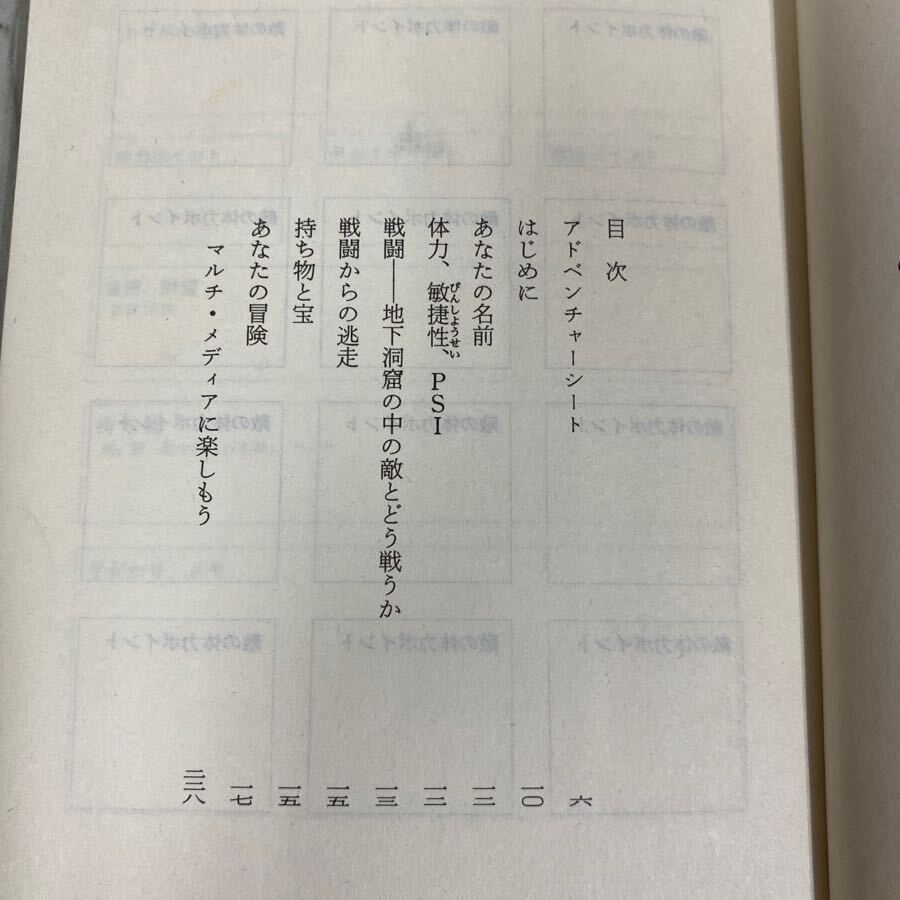 目次
アドベンチャーシート 六
はじめに 一〇
あなたの名前 一二
体力、敏捷性、PSI 一二
びんしようせい
戦闘――地下洞窟の中の敵とどう戦うか 一三
戦闘からの逃走 一五
持ち物と宝 一五
あなたの冒険 一七
マルチ・メディアに楽しもう 二三八